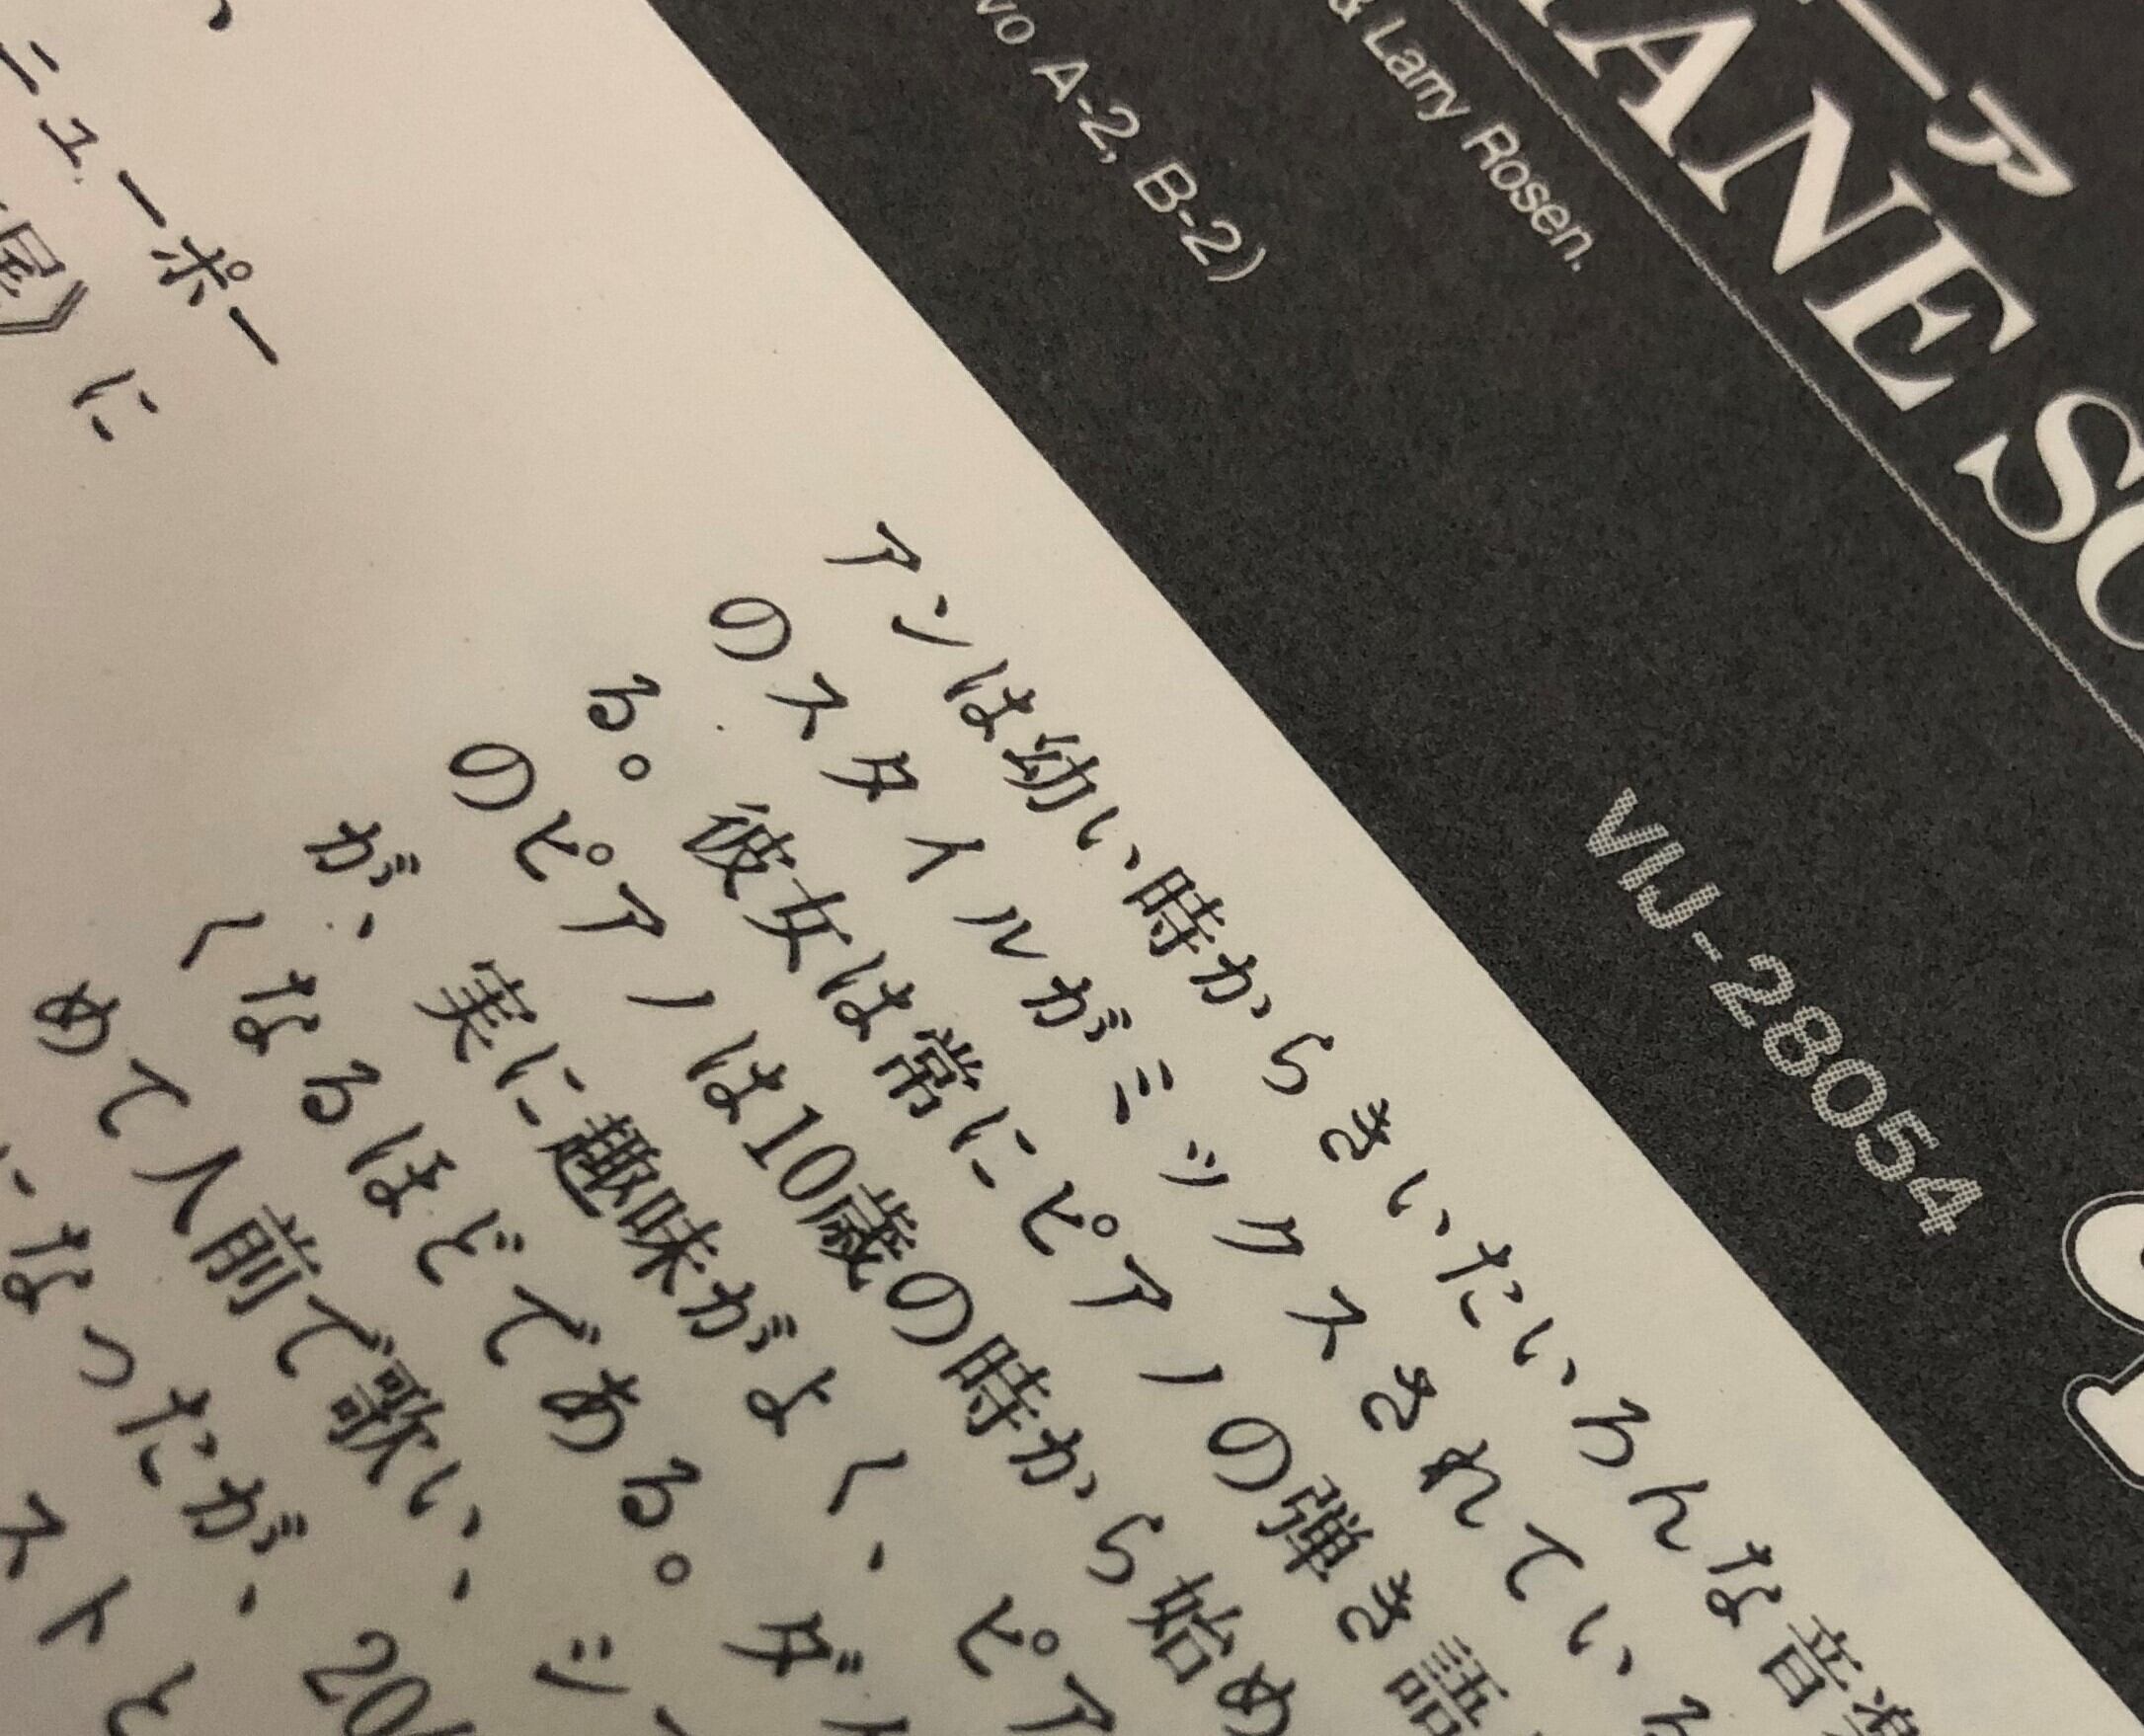 ーア
ANE SC
& Larry Rosen.
A-2, B-2)
VIJ-28054
アンは幼い時からきいたいろんな音楽
のスタイルがミックスされている
る。彼女は常にピアノの弾き語
のピアノは10歳の時から始め
が、実に趣味がよく、ピア
くなるほどである。ダ
めて人前で歌い、シ
になったが、20
ストと
ニューポー
屋》に